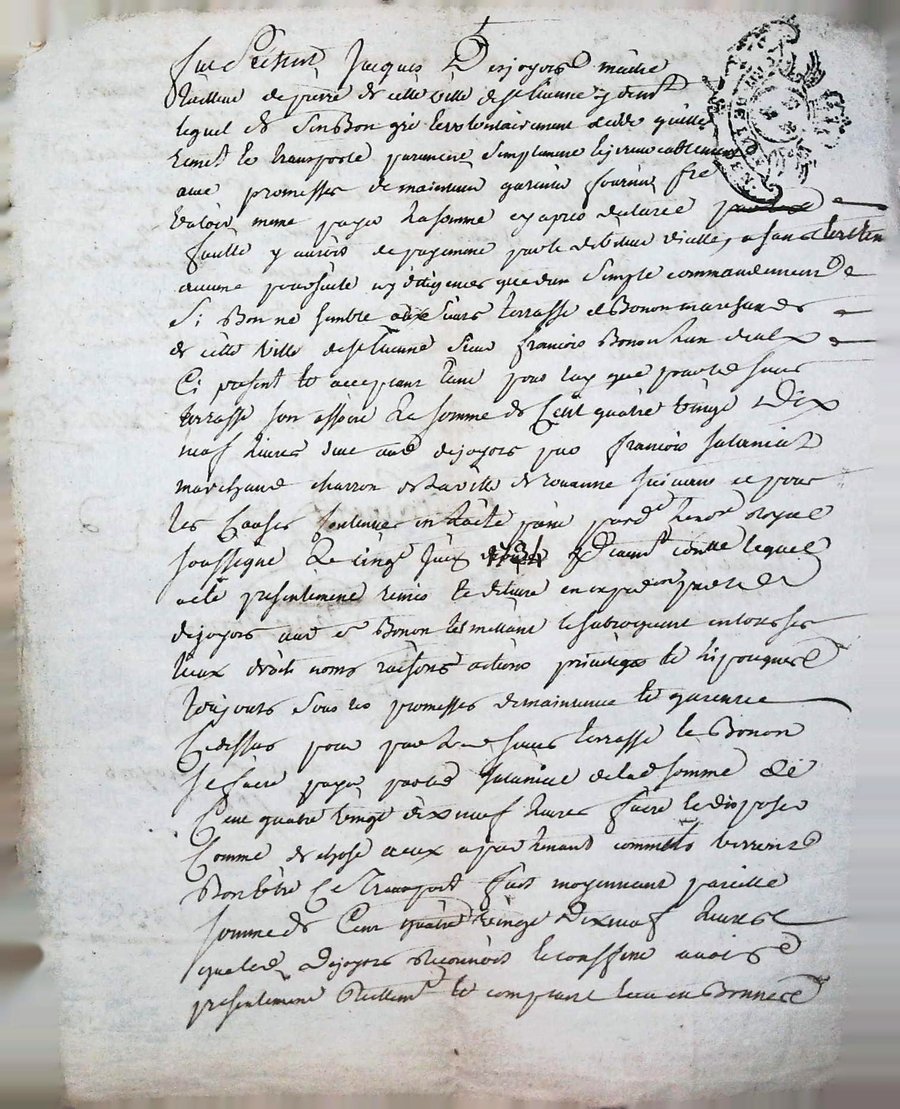 fut Présent Jacques Desjoyors maitre
tailleur de pierre de cette ville de st Etienne y demt
lequel de Son Bon gré et volontairement cedde quitte
remet et transporte purement simplement et irrevocablement
avec promesses de maintenir garantir fournir fre
valoir meme payer la somme cy apres declarée
faulte y auroit de payement par le debiteur dicelle, sans
aucune poursuite ny diligences que dun Simple commandement
Si Bon ne semble aux sieurs terrasse et Bonon marchands
de cette ville de st Etienne sieur françois Bonon lun deux
Ci present et acceptant tant pour luy que pour led sieur
terrasse son associé La somme de Cent quatre vingt Dix
neuf livres due aud dejoyors par françois
marchand charron de la ville de rouanne suivant et pour
les Causes Contenues en Lacte passé pard le nore Royal
soussigné Le vingt lequel
acte presentement remis et delivré en expedon par led
dejoyors aud sr Bonon les mettant et subrogeant en tous ses
lieux droit noms raisons actions privileges et hipoteques
toujours sous les promesses de maintenue et garentie
Cydessus pour par lesd sieurs terrasse et Bonon
se faire payer par led de lad somme de
Cent quatre vingt dix neuf livres faire et disposer
Comme de chose a eux apartenant comme ils verront
Bon être Ce Transport fait moyennant pareille
somme de Cent quatre vingt Dixneuf livres
que led Dejoyors Reconnoit et confesse avoir
presentement Reellemt et comptant receu en Bonnes